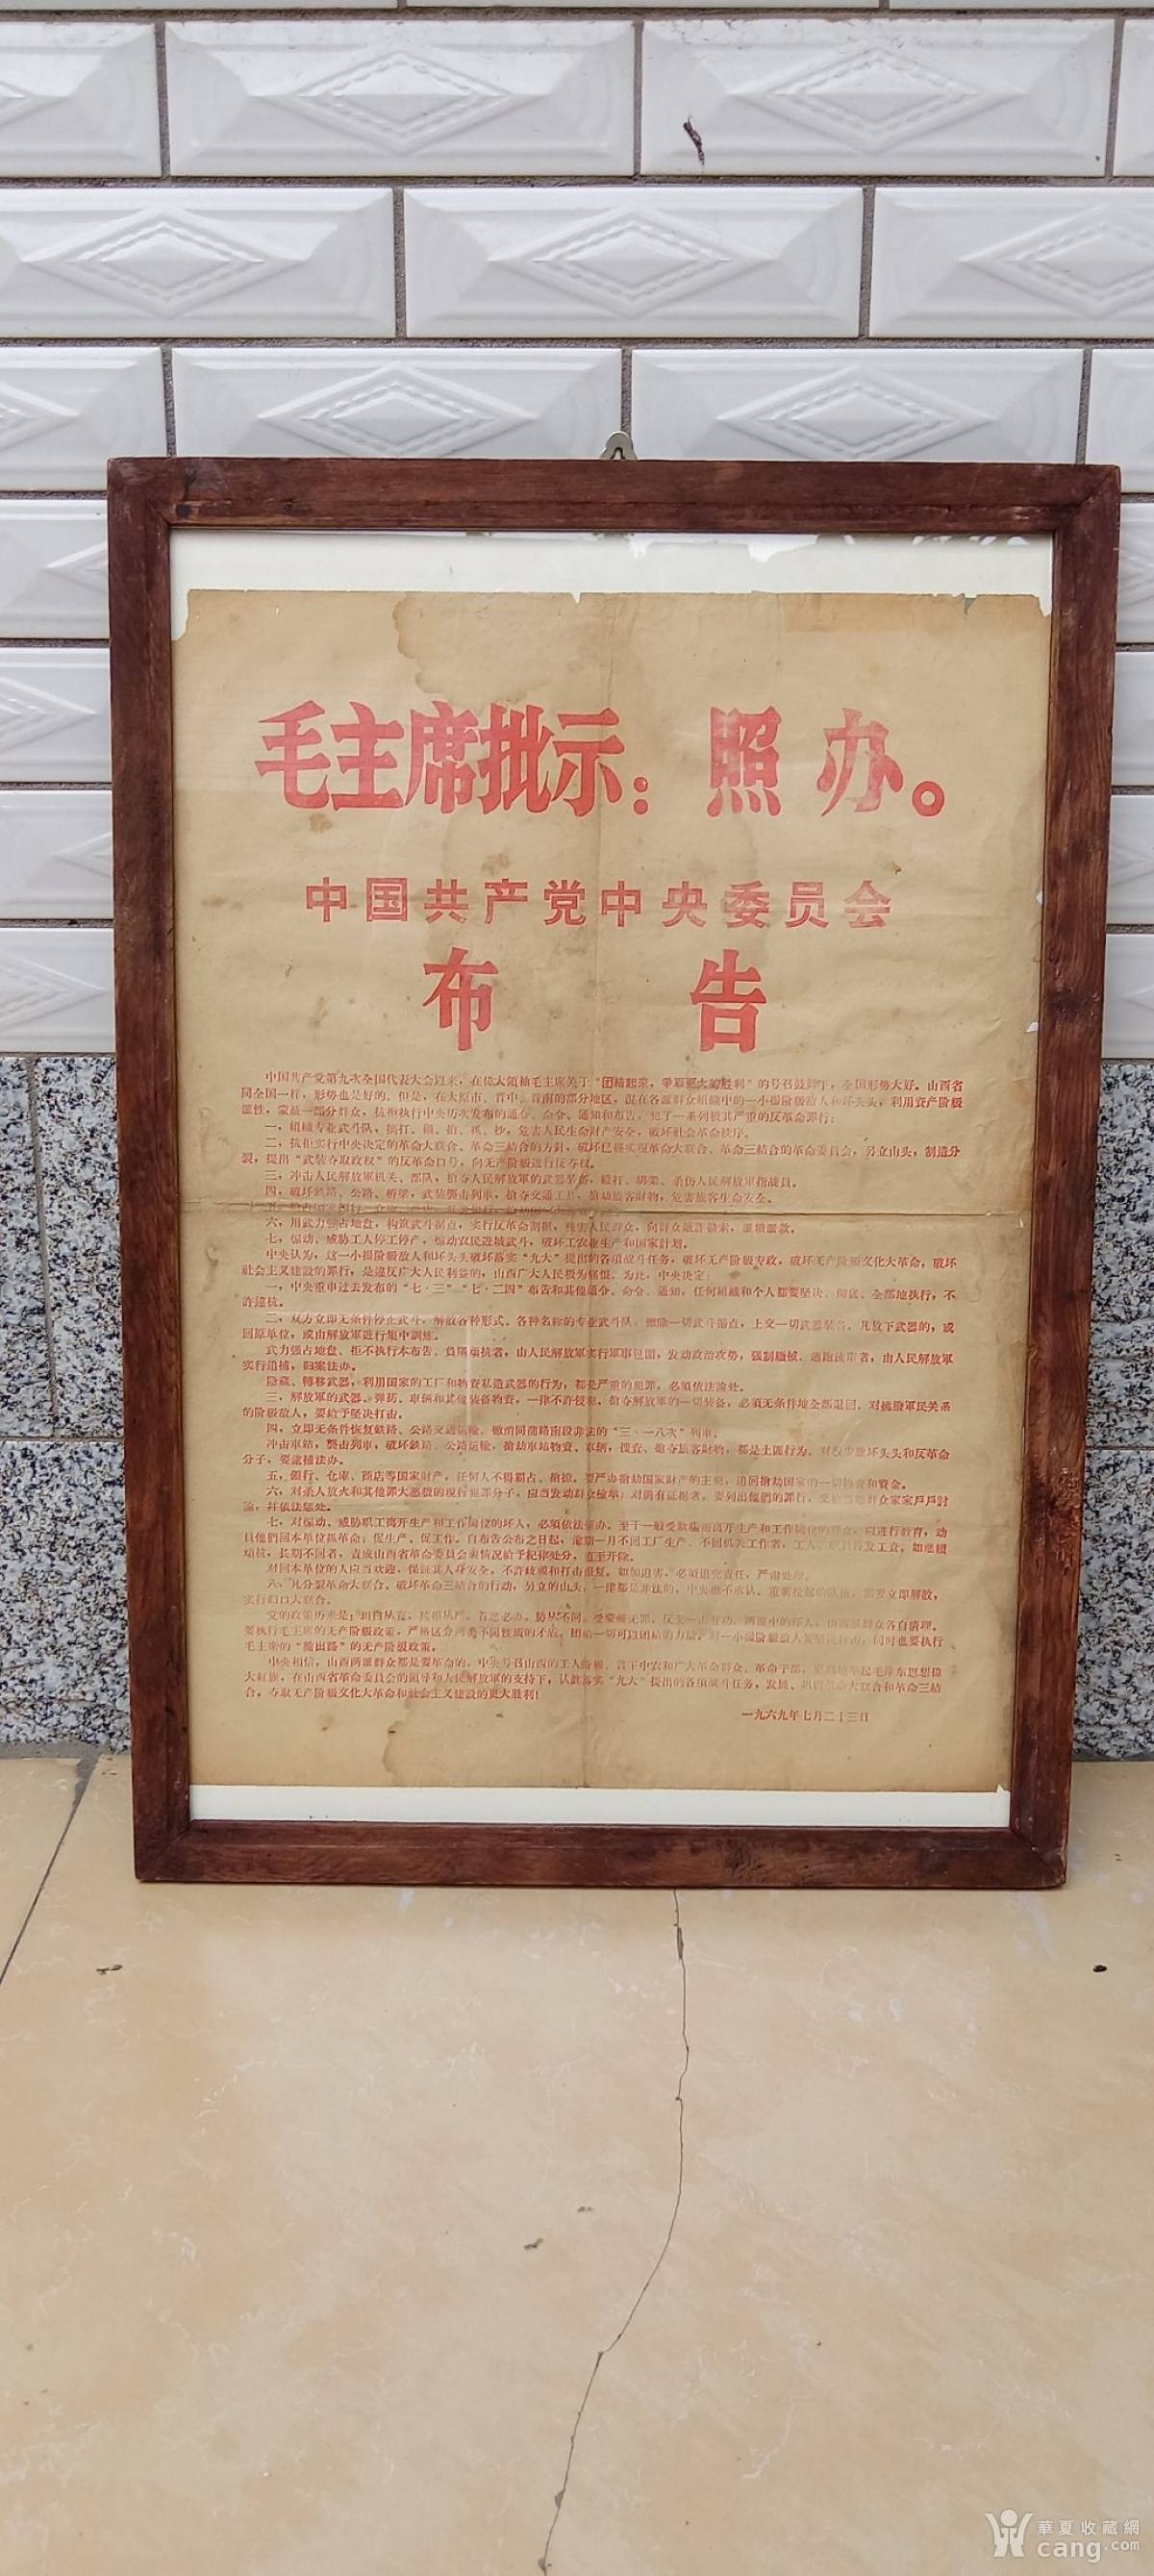 毛主席批示：照办。
中国共产党中央委员会
布告
中国共产党第九次全国代表大会以来，在偉大領袖毛主席关于“团結起来，爭取更大的胜利”的号召鼓舞下，全国形势大好。山西省
同全国一样，形势也是好的。但是，在太原市、晋中、晋南的部分地区，混在各派群众組織中的一小撮阶級敌人和坏头头，利用資产阶級
派性，蒙蔽一部分群众，抗拒执行中央历次发布的通令、命令、通知和布告，犯了一系列极其严重的反革命罪行：
一，組織专业武斗队，搞打、砸、抢、抓、抄，危害人民生命財产安全，破坏社会革命秩序。
二，抗拒实行中央决定的革命大联合、革命三結合的方針，破坏已經实现革命大联合、革命三結合的革命委員会，另立山头，制造分
裂，提出“武装夺取政权”的反革命口号，向无产阶級进行反夺权。
三，冲击人民解放軍机关、部队，抢夺人民解放軍的武器装备，殴打、綁架、杀伤人民解放軍指战員。
四，破坏鉄路、公路、桥梁，武装襲击列車，抢夺交通工具，抢劫旅客財物，危害旅客生命安全。
六，用武力强占地盘，构筑武斗据点，实行反革命割据，残害人民群众，向群众敲詐勒索，派粮派款。
七，煽动、威胁工人停工停产，煽动农民进城武斗，破坏工农业生产和国家計划。
中央认为，这一小撮阶級敌人和坏头头破坏落实“九大”提出的各項战斗任务，破坏无产阶級专政，破坏无产阶級文化大革命，破坏
社会主义建設的罪行，是違反广大人民利益的，山西广大人民极为憤恨。为此，中央决定：
一，中央重申过去发布的“七·三”“七·二四”布告和其他通令、命令、通知，任何組織和个人都要坚决、彻底、全部地执行，不
許違抗。
二，双方立即无条件停止武斗，解散各种形式、各种名称的专业武斗队，撤除一切武斗据点，上交一切武器装备。凡放下武器的，或
回原单位，或由解放軍进行集中訓练。
武力强占地盘、拒不执行本布告、負隅頑抗者，由人民解放軍实行軍事包圍，发动政治攻势，强制繳械。逃跑流窜者，由人民解放軍
实行追捕，归案法办。
隐藏、轉移武器，利用国家的工厂和物資私造武器的行为，都是严重的犯罪，必須依法論处。
三，解放軍的武器、弹药、車辆和其他装备物資，一律不許侵犯。抢夺解放軍的一切装备，必須无条件地全部退回。对挑撥軍民关系
的阶級敌人，要給予坚决打击。
四，立即无条件恢复鉄路、公路交通运輸，撤消同蒲路南段非法的“三·一八次”列車。
冲击車站，襲击列車，破坏鉄路、公路运輸，抢劫車站物資、車辆，搜查、抢夺旅客財物，都是土匪行为。对极少数坏头头和反革命
分子，要逮捕法办。
五，銀行、仓庫、商店等国家財产，任何人不得霸占、抢掠。要严办抢劫国家財产的主犯，追回抢劫国家的一切物資和資金。
六，对杀人放火和其他罪大恶极的现行犯罪分子，应当发动群众检举；对确有证据者，要列出他們的罪行，交給当地群众家家戶戶討
論，幷依法惩处。
七，对煽动、威胁职工离开生产和工作崗位的坏人，必須依法惩办。至于一般受欺騙而离开生产和工作崗位的群众，应进行教育，动
員他們回本单位抓革命，促生产、促工作。自布告公布之日起，逾期一月不回工厂生产、不回机关工作者，工人、职員停发工資。如继續
頑抗，长期不回者，責成山西省革命委員会酌情况給予紀律处分，直至开除。
对回本单位的人应当欢迎，保证其人身安全，不許歧視和打击报复。如加迫害，必須追究責任，严肃处理。
八，凡分裂革命大联合、破坏革命三結合的行动，另立的山头，一律都是非法的，中央概不承认。重新拉起的队伍，需要立即解散，
实行归口大联合。
党的政策历来是：坦白从宽，抗拒从严，首恶必办，胁从不問，受蒙蔽无罪，反戈一击有功。两派中的坏人，由两派群众各自清理。
要执行毛主席的无产阶級政策，严格区分两类不同性质的矛盾，团結一切可以团結的力量。对一小撮阶級敌人要坚决打击，同时也要执行
毛主席的“給出路”的无产阶級政策。
中央相信，山西两派群众都是要革命的，中央号召山西的工人阶級、貧下中农和广大革命群众、革命干部，更高地举起毛泽东思想偉
大紅旗，在山西省革命委員会的領导和人民解放軍的支持下，认眞落实“九大”提出的各項战斗任务，发展、巩固革命大联合和革命三結
合，夺取无产阶級文化大革命和社会主义建設的更大胜利！
一九六九年七月二十三日
華夏收藏網
cang.com